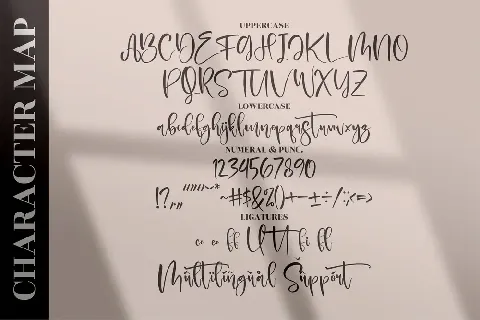 CHARACTER MAP
UPPERCASE
ABCDEFGHIJKLMNO
PQRSTUVWXYZ
LOWERCASE
abcdefghijklmnopqrstuvwxyz
NUMERAL & PUNC.
1234567890
!?,,,""''~* ~#$&%()+-±÷/:;<=>
LIGATURES
ff fi ll
Multilingual Support